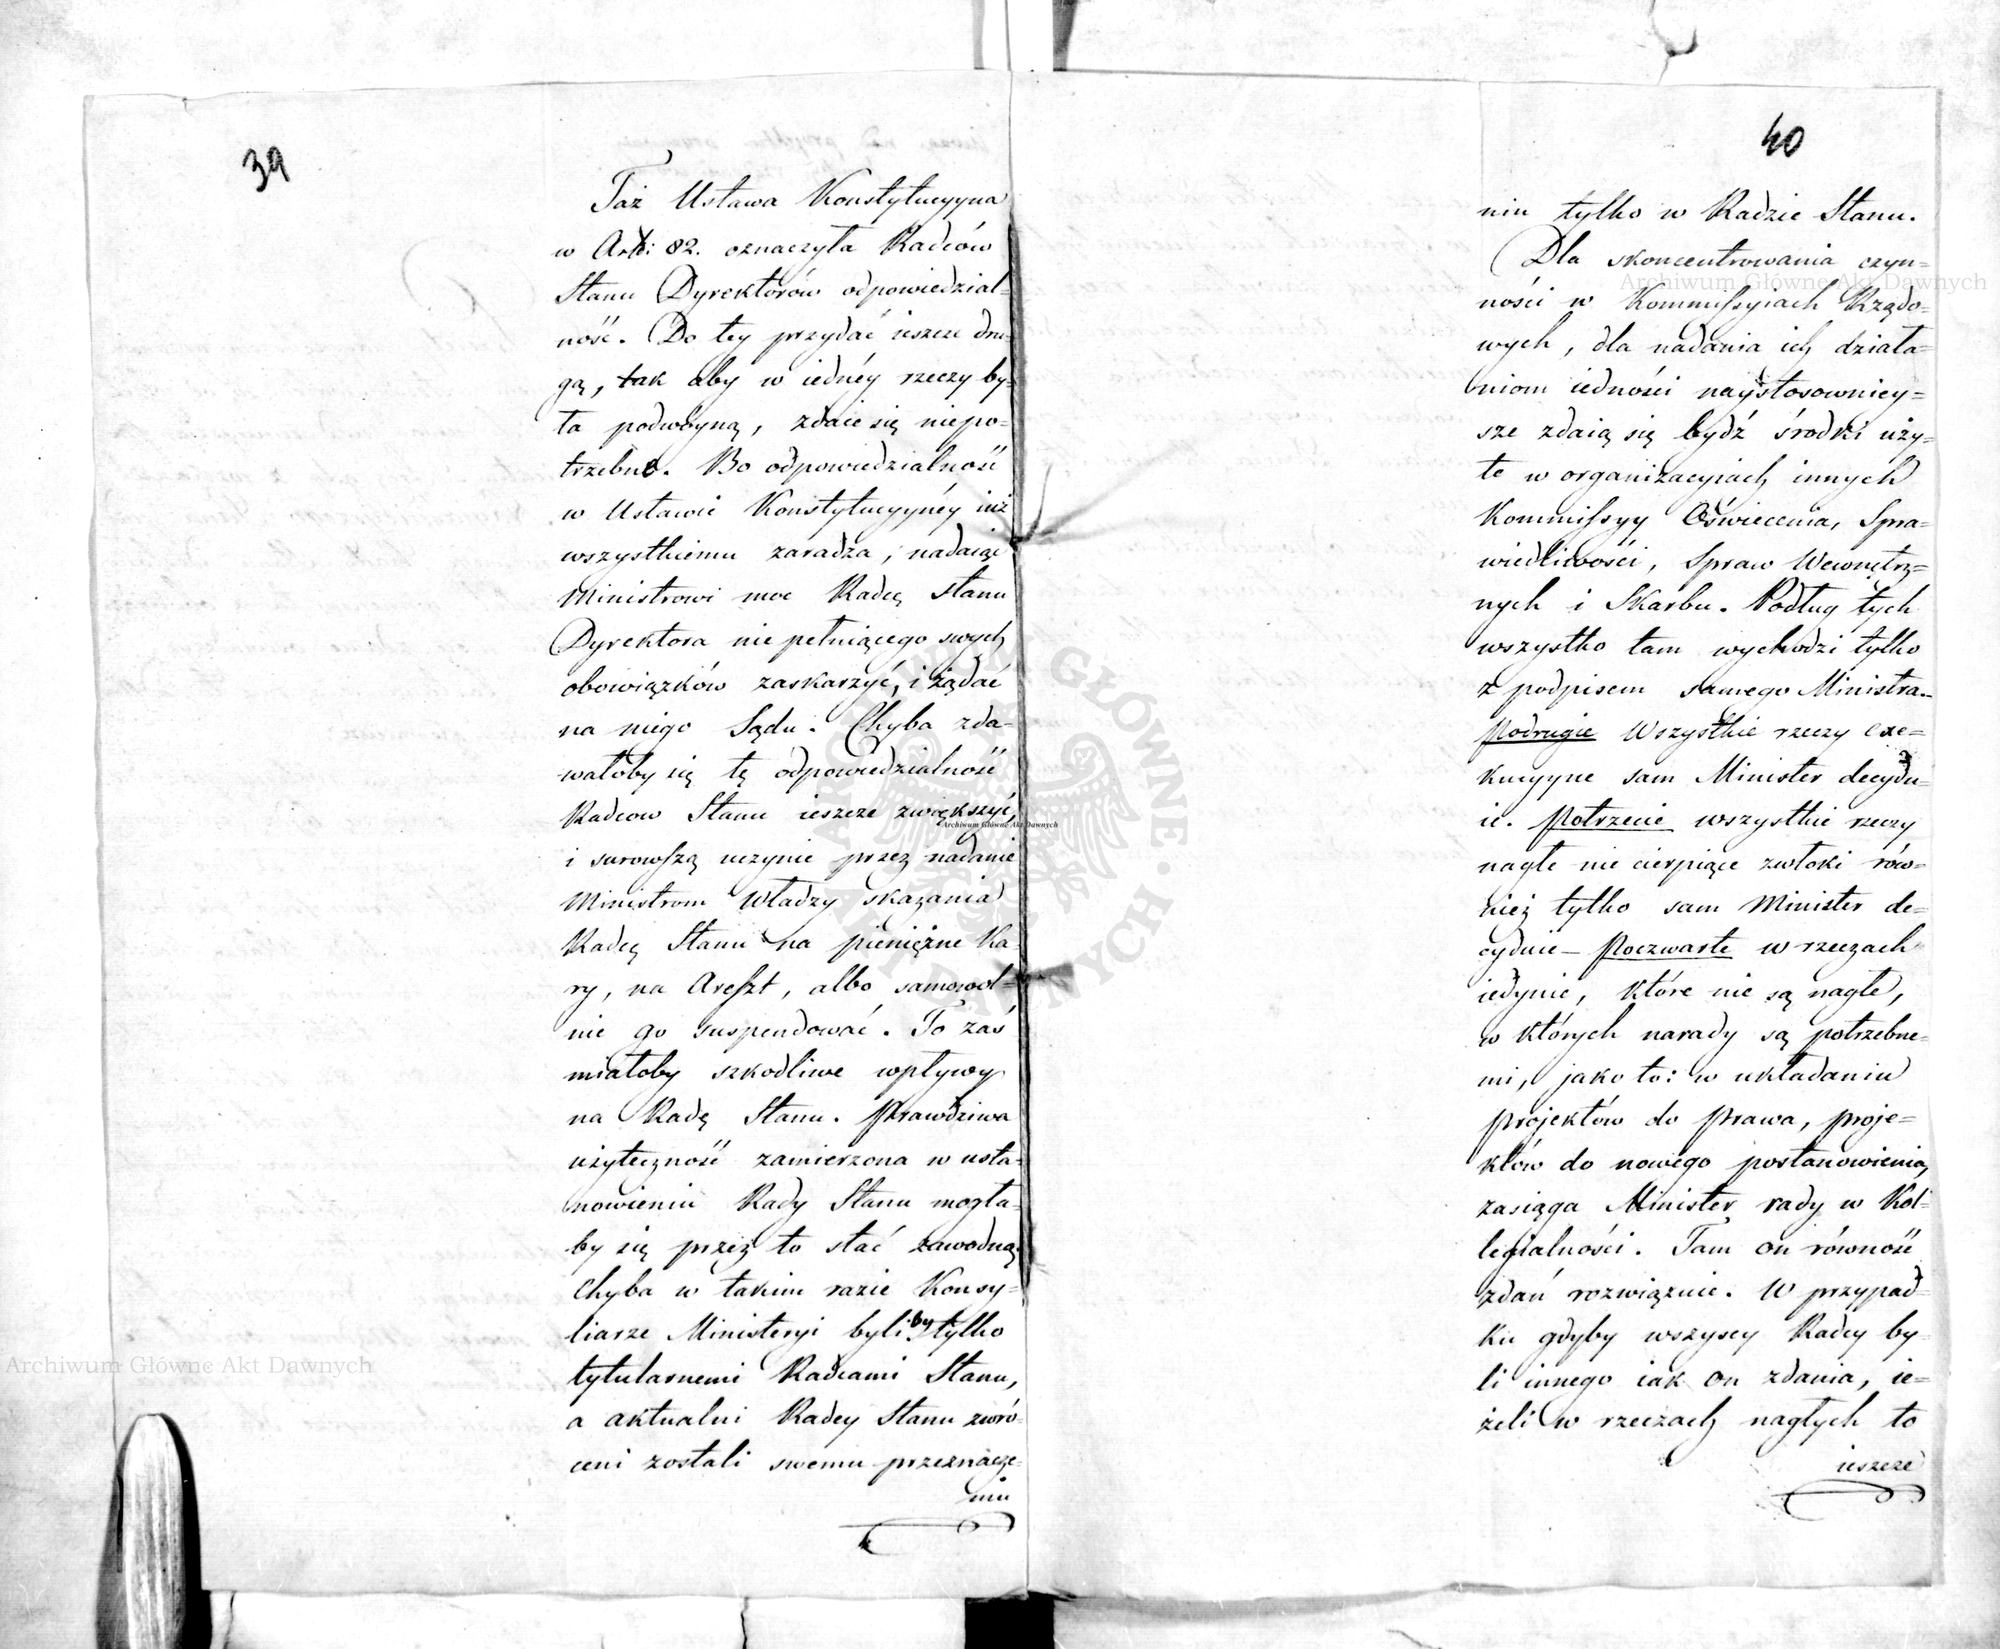 39
Taż Ustawa Konstytucyyna
w Art: 82. oznaczyła Radców
Stanu Dyrektorów odpowiedzial=
ność. Do tey przydać ieszcze dru=
gą, tak aby w iednéy rzeczy by=
ła podwóyną, zdaie się niepo=
trzebne. Bo odpowiedzialność
w Ustawie Konstytucyynéy iuż
wszystkiemu zaradza, nadaiąc
Ministrowi moc Radcę Stanu
Dyrektora nie pełniącego swych
obowiązków zaskarzyć, i żądać
na niego Sądu. Chyba zda=
wałoby się tę odpowiedzialność
Radcow Stanu ieszcze zwiększyć,
i surowszą uczynić przez nadanie
Ministrom Władzy skazania
Radcę Stanu na pieniężne Ka=
ry, na Areszt, albo samowol=
nie go suspendować. To zaś
miałoby szkodliwe wpływy
na Radę Stanu. Prawdziwa
użyteczność zamierzona w usta=
nowieniu Rady Stanu mogła=
by się przez to stać zawodną.
Chyba w takim razie Konsy=
liarze Ministeryi byliby tylko
tytularnemi Radcami Stanu,
a aktualni Radcy Stanu zwró=
ceni zostali swemu przeznacze=
niu
40
niu tylko w Radzie Stanu.
Dla skoncentrowania czyn=
ności w Kommissyiach Rządo=
wych, dla nadania ich działa=
niom iedności naystosowniey=
sze zdaią się bydź środki uży=
te w organizacyiach innych
Kommissyy Oświecenia, Spra=
wiedliwości, Spraw Wewnętrz=
nych i Skarbu. Podług tych
wszystko tam wychodzi tylko
z podpisem samego Ministra.
Podrugie Wszystkie rzeczy exe=
kucyyne sam Minister decydu=
ie. Potrzecie wszystkie rzeczy
nagłe nie cierpiące zwłoki rów=
nież tylko sam Minister de=
cyduie – Poczwarte w rzeczach
iedynie, które nie są nagłe,
w których narady są potrzebne=
mi, jako to: w układaniu
projektów do prawa, proje=
któw do nowego postanowienia,
zasiąga Minister rady w Kol=
legialności. Tam on równość
zdań rozwiązuie. W przypad=
ku gdyby wszyscy Radcy by=
li innego iak on zdania, ie=
żeli w rzeczach nagłych to
ieszcze
Archiwum Główne Akt Dawnych
Archiwum Główne Akt Dawnych
Archiwum Główne Akt Dawnych